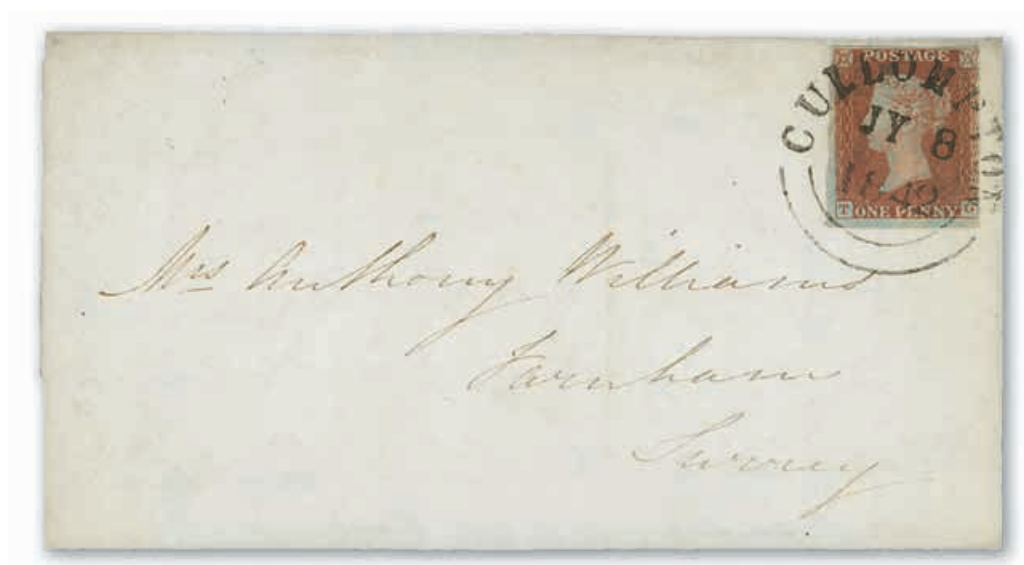 POSTAGE
CULLOMPTON
JY 8
1849
T ONE PENNY G
Mrs Anthony Williams
Farnham
Surrey